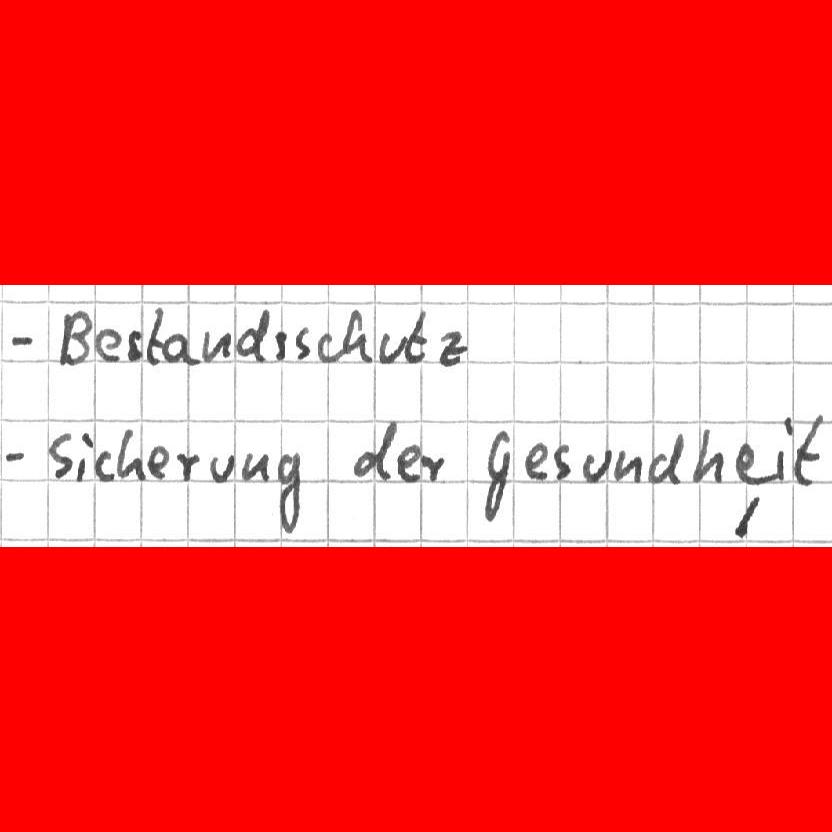 - Bestandsschutz
- Sicherung der Gesundheit